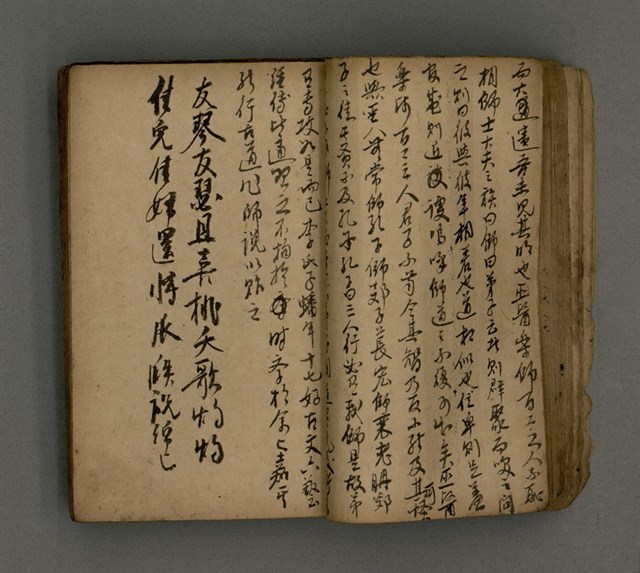 而大遺吾未見其明也巫醫樂師百工之人不恥
相師士大夫之族曰師曰弟子云者則群聚而笑之問
之則曰彼與彼年相若也道相似也位卑則足羞
官盛則近諛嗚呼師道之不復可知矣巫醫
樂師百工之人君子不齒今其智乃反不能及其可怪
也與聖人無常師孔子師郯子萇弘師襄老聃郯
子之徒其賢不及孔子孔子曰三人行必有我師是故弟
有專攻如是而已李氏子蟠年十七好古文六藝
經傳皆通習之不拘於時學於余余嘉其
能行古道作師說以貽之
友琴友瑟且喜桃夭歌灼灼
佳兒佳婦還將瓜瓞祝綿々